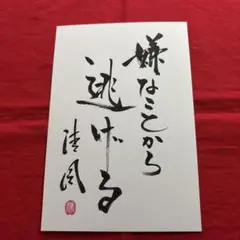 嫌なことから
逃げる
清風